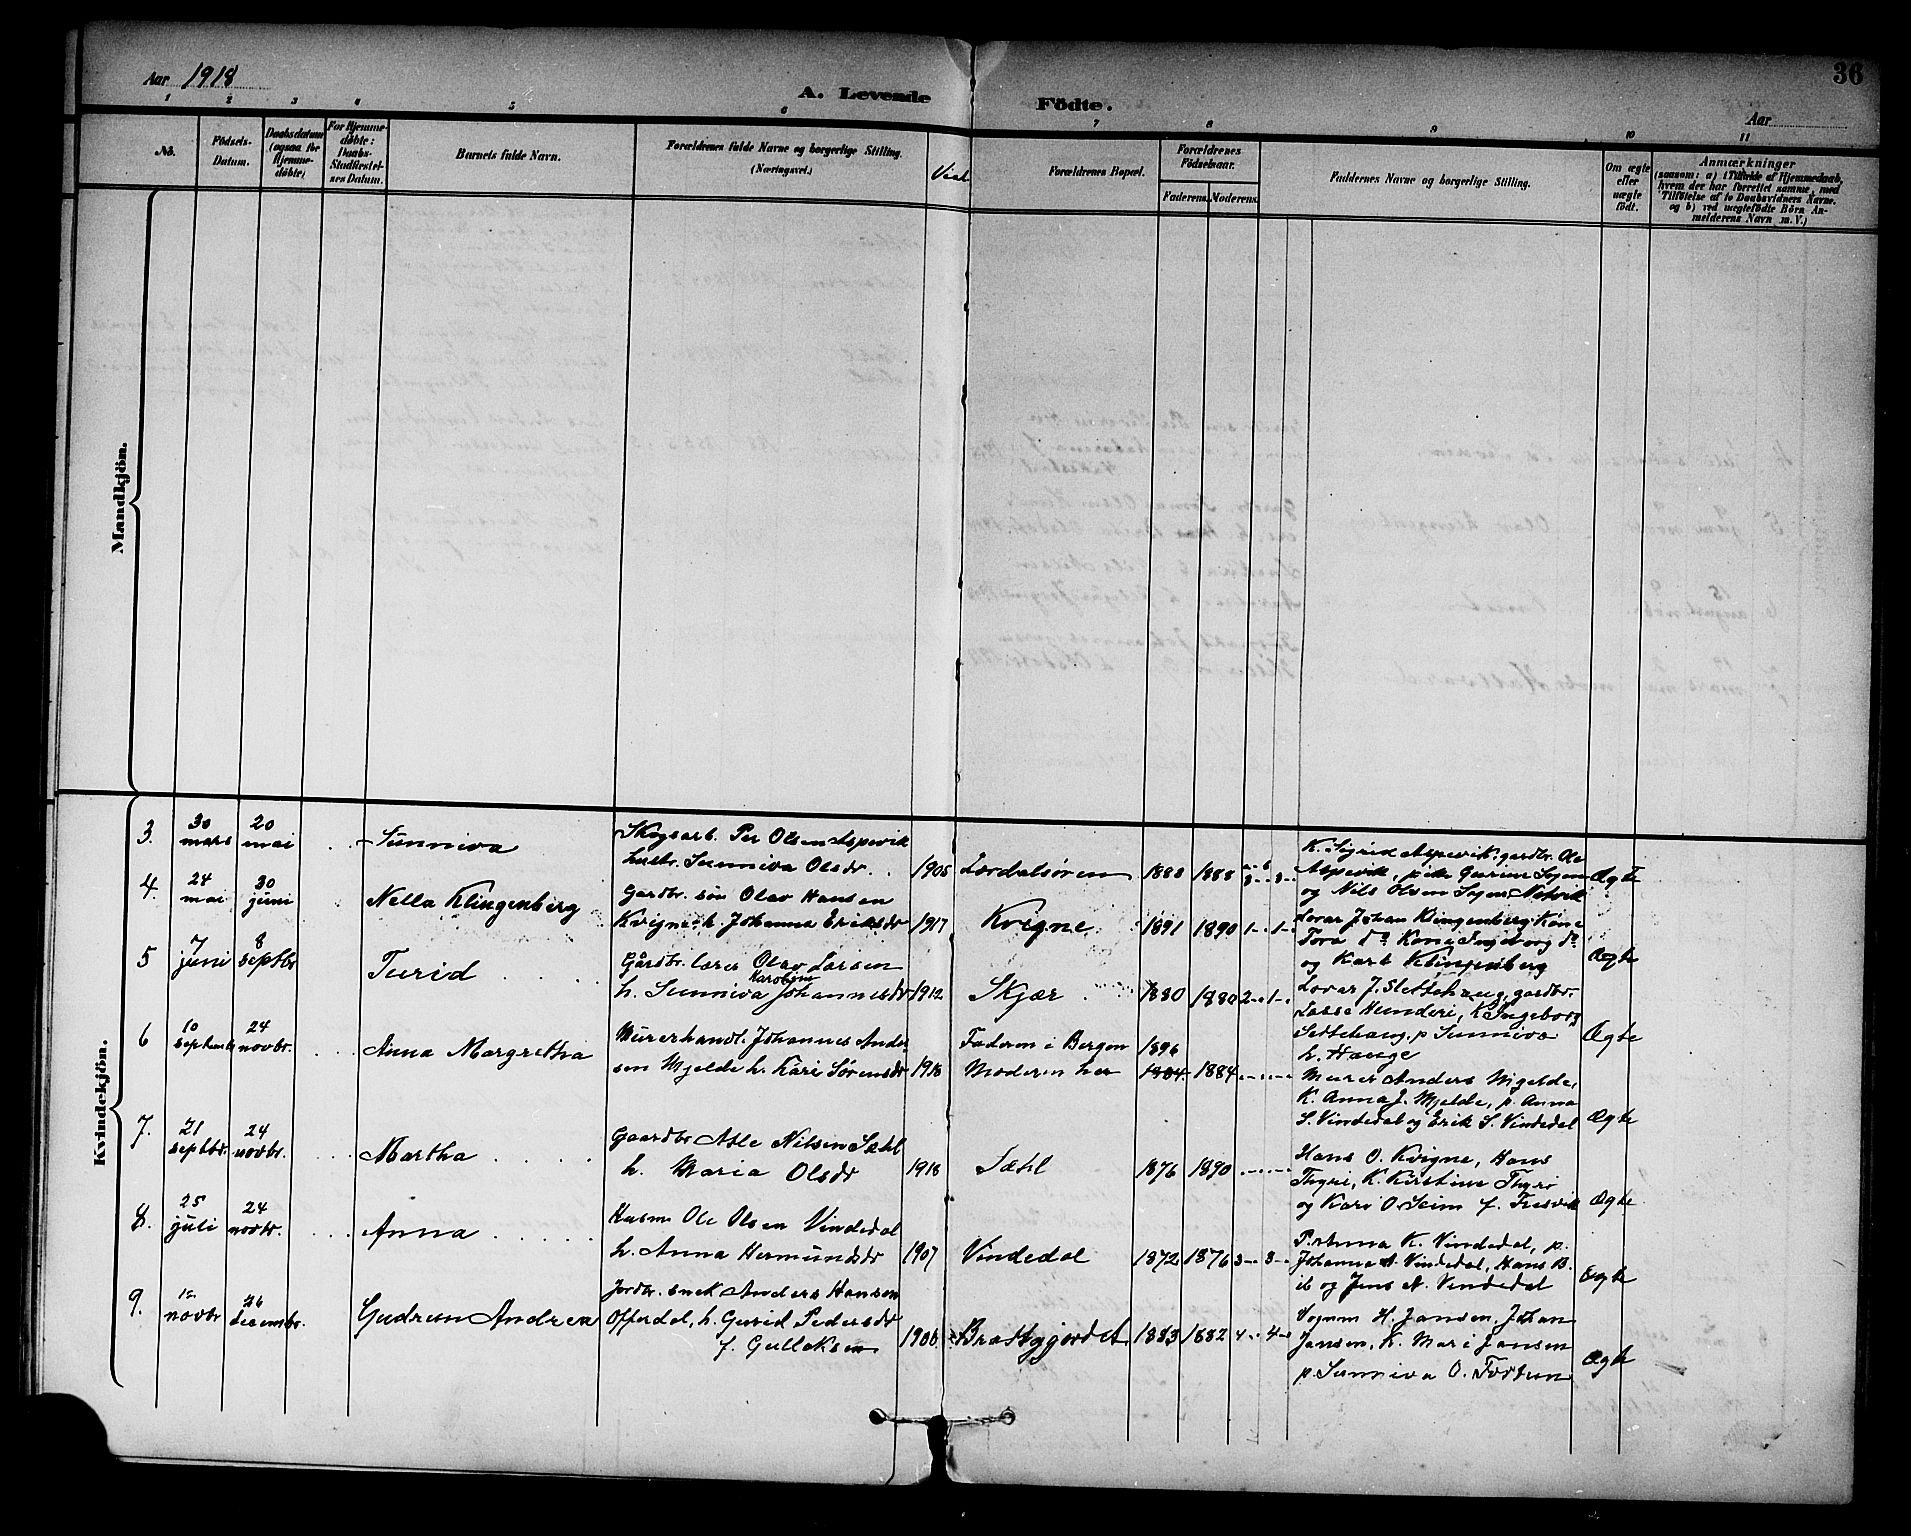 Aar 1918
A. Levende Födte.
36
Aar
1 2 3 4 5 6 7 8 9 10 11
No.
Födsels-
Datum.
Daabsdatum
(ogsaa for
Hjemme-
döbte)
For Hjemme-
döbte:
Daabs-
Stadfæstel-
ses Datum.
Barnets fulde Navn.
Forældrenes fulde Navne og borgerlige Stilling.
(Næringsvei.)
Viet
Forældrenes Bopæl.
Forældrenes
Födselsaar.
Faderens. Moderens.
Faddernes Navne og borgerlige Stilling.
Om ægte
eller
uægte
födt.
Anmærkninger
(saasom: a) i Tilfælde af Hjemmedaab,
hvem der har forrettet samme, med
Tilföielse af to Daabsvidners Navne.
og b) ved uægtefödte Börn An-
melderens Navn m. V.)
Mandkjön.
Kvindekjön.
3. 30 mars 20 mai Sunniva
Skogsarb. Per Olsen Aspevik
hustr. Sunniva Olsdr. 1905 Lærdalsøren 1883 1888
K. Sigrid Aspevik, gardbr. Ole
Aspevik, pike Gurine Sejem
og Nils Olsen Ægte
4. 24 mai 30 juni Nella Klingenberg
Gardbr. søn Olav Hansen
Kvigne h. Johanna Eriksdr 1917 Kvigne 1891 1890 1 1
Lærar Johan Klingenberg, Kone
Tora do Kone Ingeborg do
og Karl Klingenberg Ægte
5 7 juni 8 septbr Turid
Gårdbr. lærer Olav Larsen
h. Sunniva Karoline Johannesdr 1912 Skjær 1880 1880 2 1
Lærar J. Slettehaug, gardbr.
Lasse Hunderi, K. Ingeborg
Settehaug, p Sunniva
h. Hauge Ægte
6 10 septembr 24 novbr. Anna Margretha
Murerhandt. Johannes Ander-
sen Mjelde h. Kari Sørensdr 1918 Faderen i Bergen
Moderen her 1896 1884 1884
Murer Anders Mjelde,
K. Anna J. Mjelde, p. Anna
S. Vindedal og Erik S. Vindedal Ægte
7. 21 septbr. 24 novbr. Martha
Gaardbr Atle Nilsen Sæhl
h. Maria Olsdr 1918 Sæhl 1876 1890
Hans O. Kvigne, Hans
Thyri, K. Kirstine Thyri
og Kari O. Seim f. Fresvik Ægte
8. 25 juli 24 novbr. Anna
Husm Ole Olsen Vindedal
h. Anna Hermundsdr 1907 Vindedal 1872 1876 3 3
P. Anna K. Vindedal, p.
Johanna A Vindedal, Hans B.
ib og Jens A. Vindedal Ægte
9. 12 novbr 26 decembr. Gudrun Andrea
Jordbr. snek Anders Hansen
Offerdal, h. Gurid Pedersdr
f. Gulleksen 1906 Brattegjerdet 1883 1882 4 4
Vognm H. Jansen, Johan
Jansen, K. Mari Jansen
p. Sunniva O. Fortun Ægte